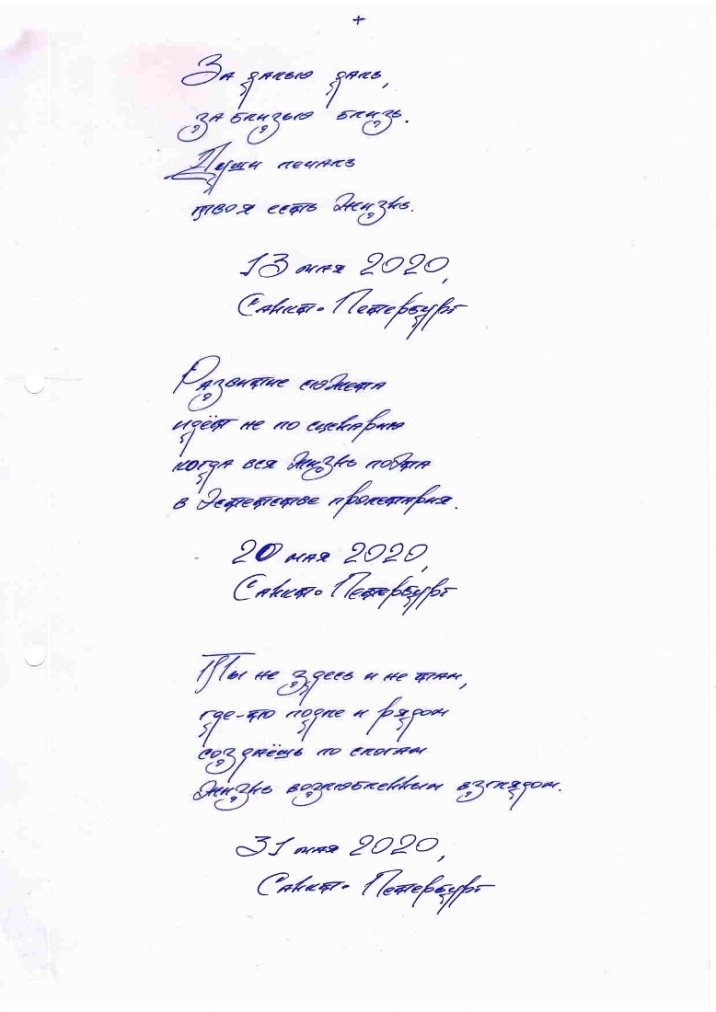 +
За далью даль,
за близью близь.
Души печаль
твоя есть Жизнь.
13 мая 2020,
Санкт-Петербург
Развитие сюжета
идёт не по сценарию
когда вся Жизнь поэта
в Эстетстве пролетария.
20 мая 2020,
Санкт-Петербург
Ты не здесь и не там,
где-то подле и рядом
создаёшь по слогам
Жизнь возлюбленным взглядом.
31 мая 2020,
Санкт-Петербург